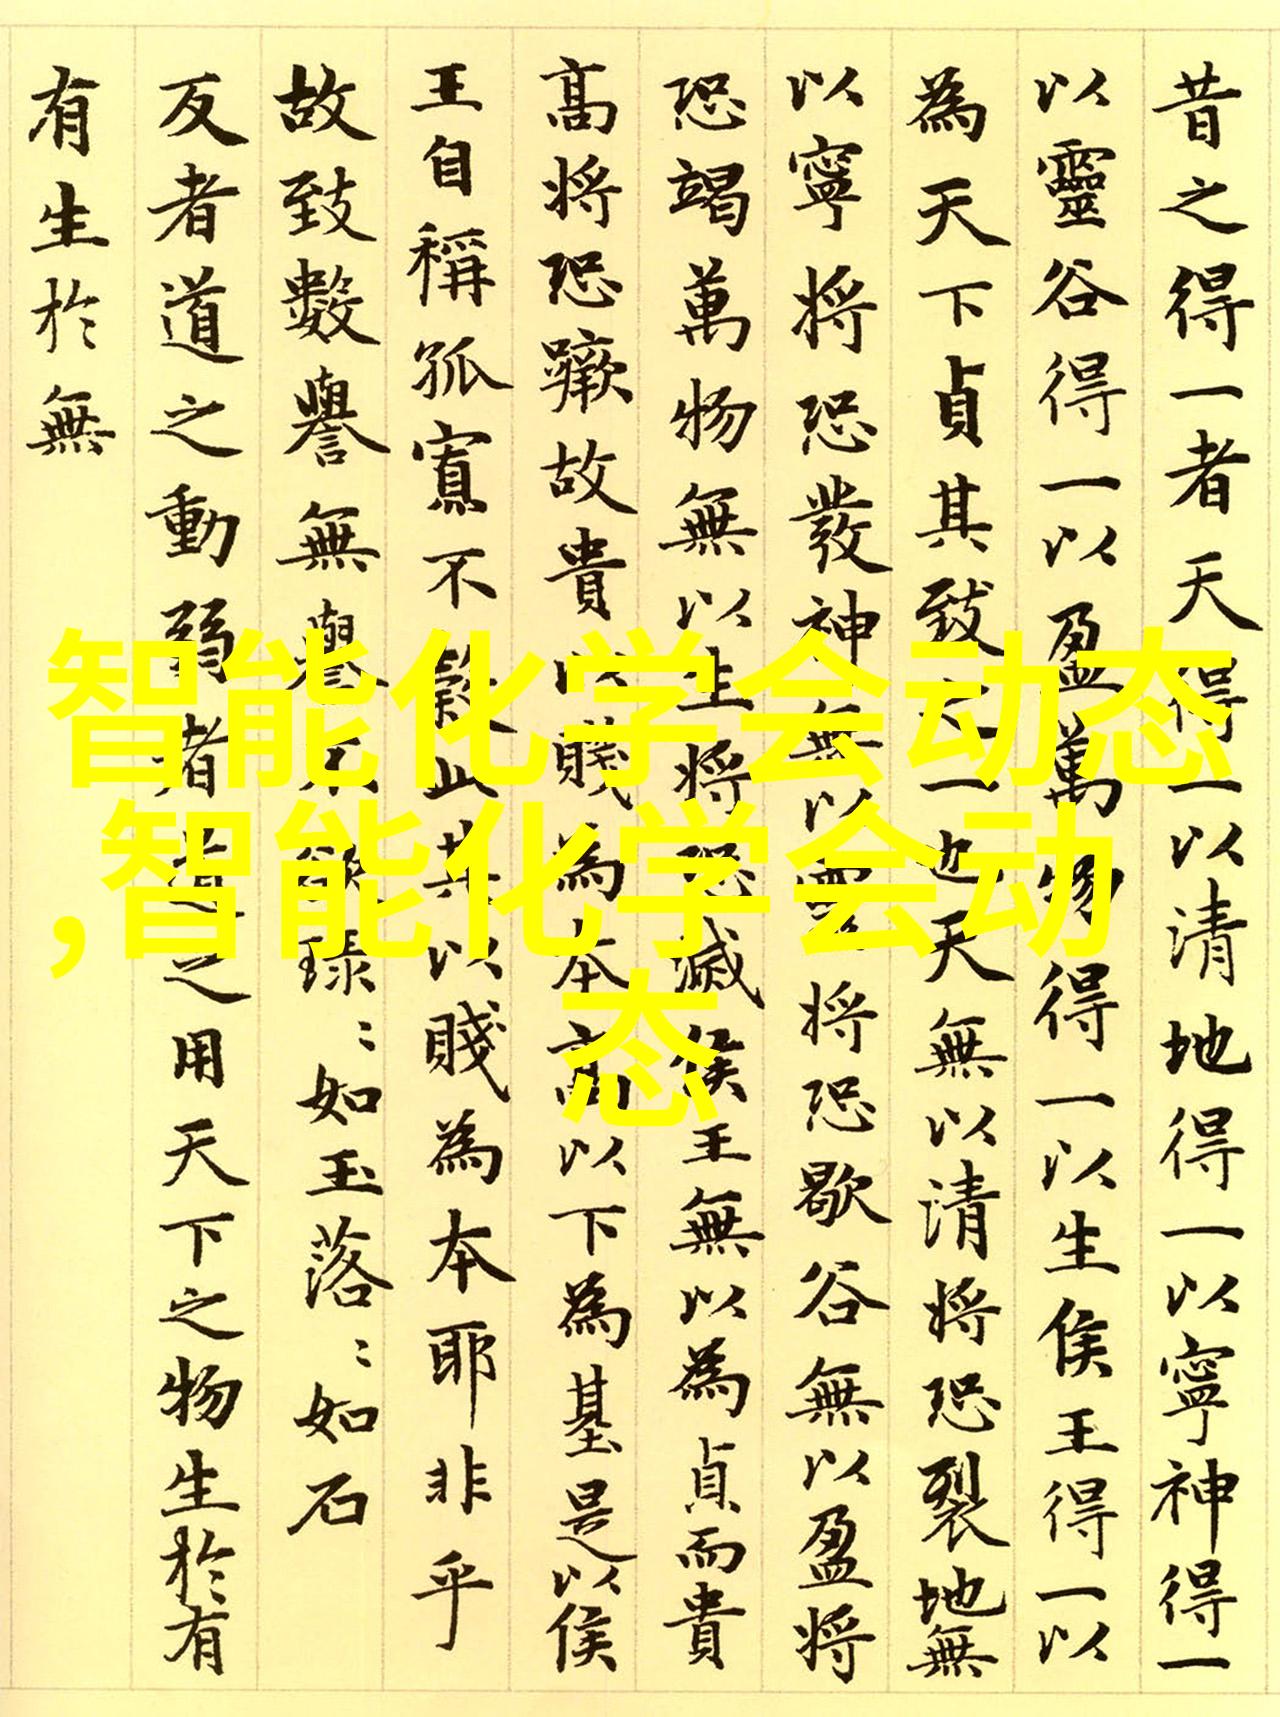 昔之得一者天得一以清地得一以寧神得一
以靈谷得一以盈萬物得一以生侯王得一以
為天下貞其致之一也天無以清將恐裂地無
以寧將恐發神無以靈將恐歇谷無以盈將
恐竭萬物無以生將恐滅侯王無以為貞而貴
高將恐蹶故貴以賤為本高以下為基是以侯
王自稱孤寡不穀此其以賤為本耶非乎
故致數譽無譽不欲琭〻如玉落〻如石
反者道之動弱者道之用天下之物生於有
有生於無
智能化学会动态
,智能化学会动
态